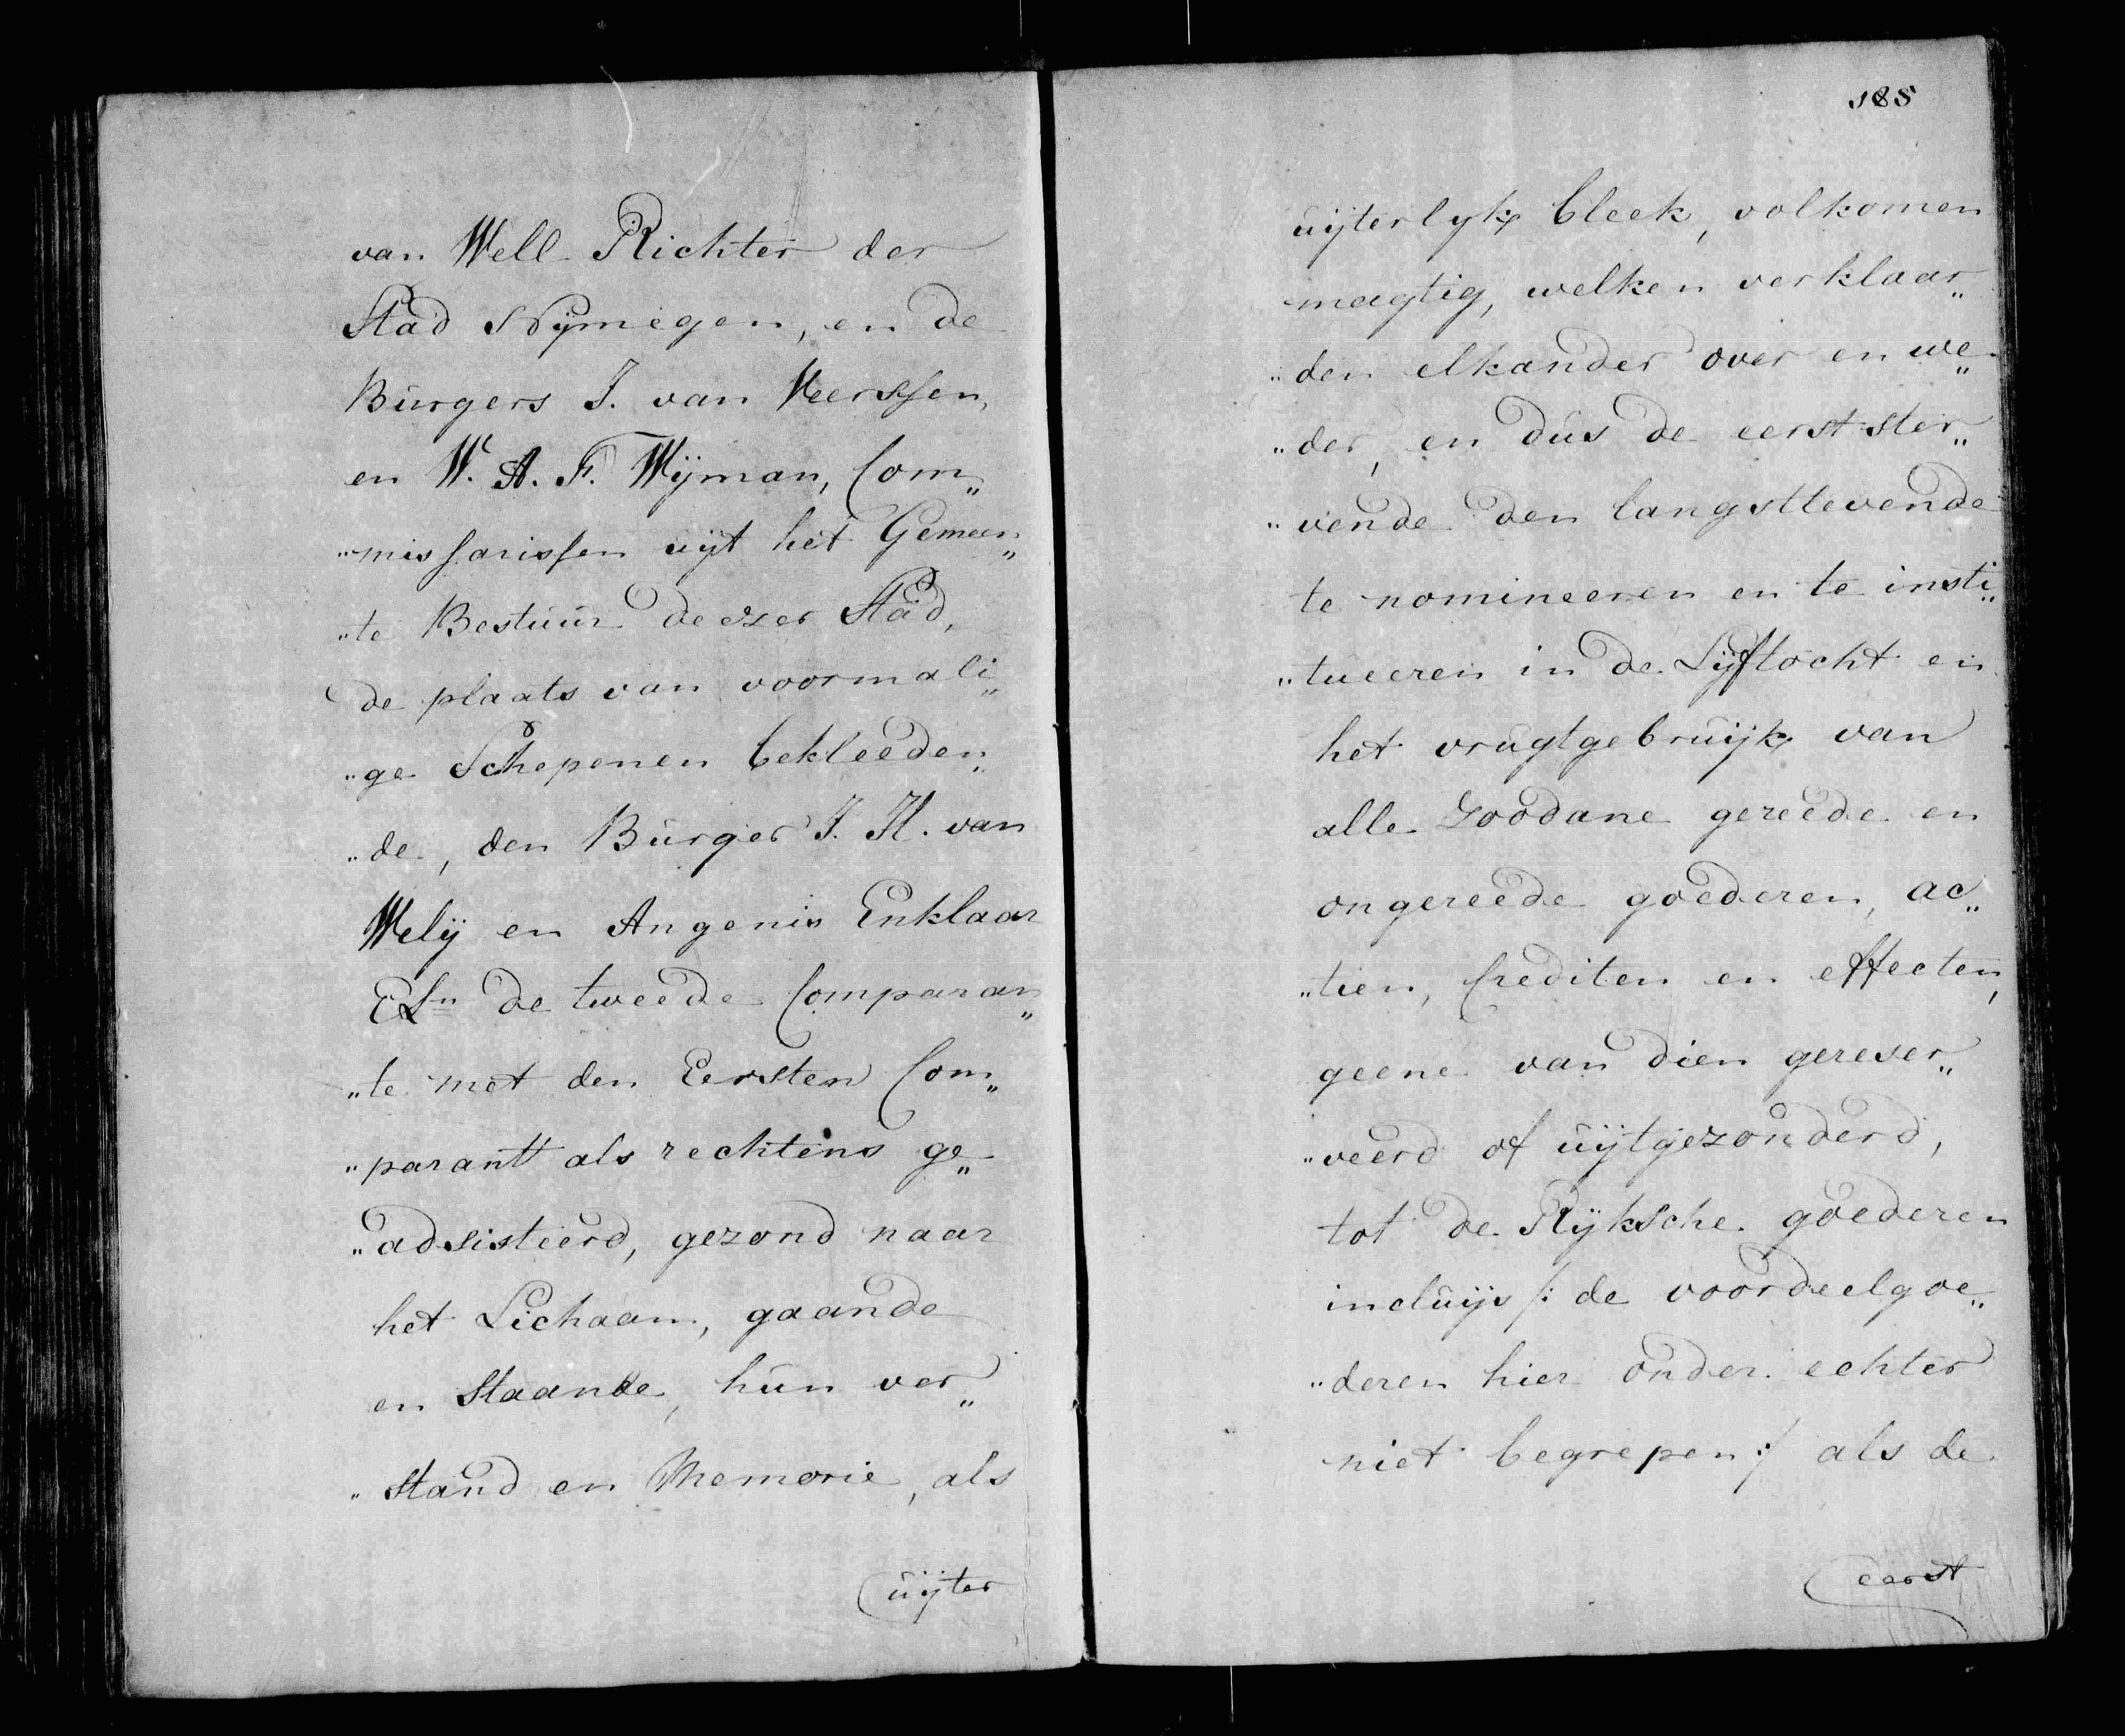 van Well Richter der
Stad Nymegen, en de
Burgers J. van Heerssen,
en W. A. F. Wijman, Com„
„missarissen uyt het Gemeen„
„te Bestuur deezer Stad,
de plaats van voormali„
„ge Schepenen bekleeden„
„de, den Burger J. H. van
Welij en Angenis Enklaar
ELn de tweede Comparan„
„te met den Eersten Com„
„parant als rechtens ge„
„adsisteerd, gezond naar
het Lichaam, gaande
en Staande, hun ver„
„stand en Memorie, als
uijter
188
uijterlyk bleek, volkomen
magtig, welken verklaar„
„den elkander over en we„
„der, en dus de eerst ster„
„vende den langstlevende
te nomineeren en te insti„
„tueeren in de Lijftocht en
het vrugtgebruijk van
alle Zoodane gereede en
ongereede goederen, ac„
„tien, Crediten en effecten,
geene van dien gereser„
„veerd of uijtgezonderd,
tot de Rijksche goederen
incluijs /: de voordeelgoe„
„deren hier onder echter
niet begrepen :/ als de
eerst